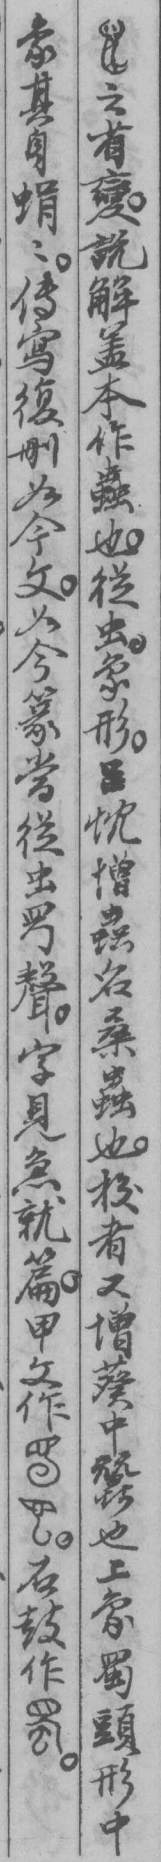 云有變。說解蓋本作蟲也。從虫。象形。呂忱增蟲名桑蟲也。校者又增葵中蠶也上象蜀頭形中
象其身蜎〻。傳寫復刪如今文。如今篆當從虫罒聲。字見急就篇。甲文作。石鼓作。